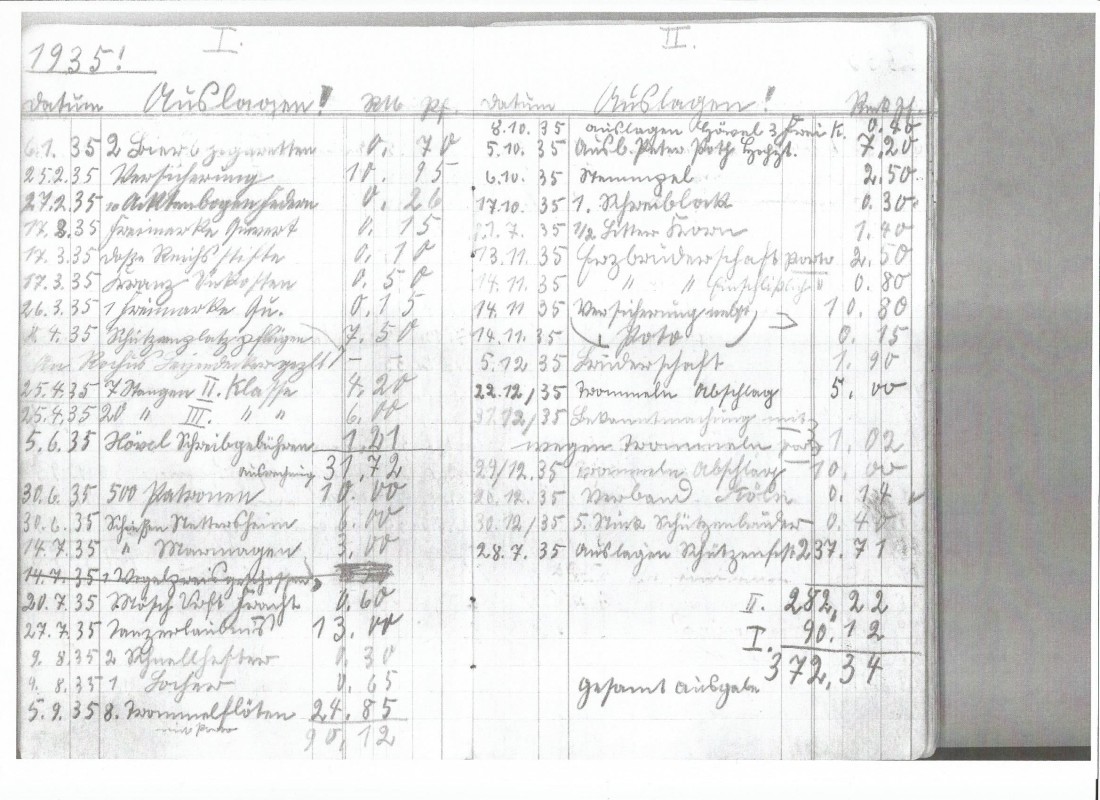 1935!
I.
Datum Auslagen! RM Pf.
6.1.35 2 Bier 6 Zigaretten 0.70
25.2.35 Versicherung 10.15
27.2.35 10 Aktenbogen Federn 0.26
17.3.35 Freimarke Quvert 0.15
17.3.35 Reichs stifte 0.10
17.3.35 Kranz Unkosten 0.50
26.3.35 1 Freimarke Qu. 0.15
4.35 Schützenplatz pflügen 7.50
An Rochus gezlt. –
25.4.35 7 Stangen II. Klasse 4.20
25.4.35 20 " III. " " 6.00
5.6.35 Hövel Schreibgebühren 1.21
31.72
30.6.35 500 Patronen 10.00
30.6.35 Schießen Nettersheim 6.00
14.7.35 " Marmagen 3.00
14.7.35 1 Vogelpreis geschossen
20.7.35 Mösch Urft Fracht 0.60
27.7.35 Tanzerlaubnis 13.00
9.8.35 2 Schnellhefter 0.30
9.8.35 1 Locher 0.65
5.9.35 8. Trommelflöten 24.85
mit Porto
90.12
II.
Datum Auslagen! Pf.
8.10.35 auslagen Hövel 3 Frei K. 0.40
5.10.35 Ausl. Peter Poth Hochzt. 7.20
6.10.35 Stemmpel 2.50
17.10.35 1. Schreiblock 0.30
7.35 1/2 Litter Korn 1.40
13.11.35 Erzbruderschaft porto 2.50
14.11.35 " " Einschlißlich 0.80
14.11.35 Versicherung nebst 10.80
14.11.35 Poto 0.15
5.12.35 Bruderschaft 1.90
22.12/35 Trommeln Abschlag 5.00
12/35 Bekanntmachung
wegen Trommeln 1.02
27/12.35 Trommeln Abschlag 10.00
12.35 Verband Köln 0.14
30.12/35 5. Stück Schützenbrüder 0.40
28.7.35 Auslagen Schützenfest 237.71
II. 282,22
I. 90.12
372,34
Gesamt Ausgabe